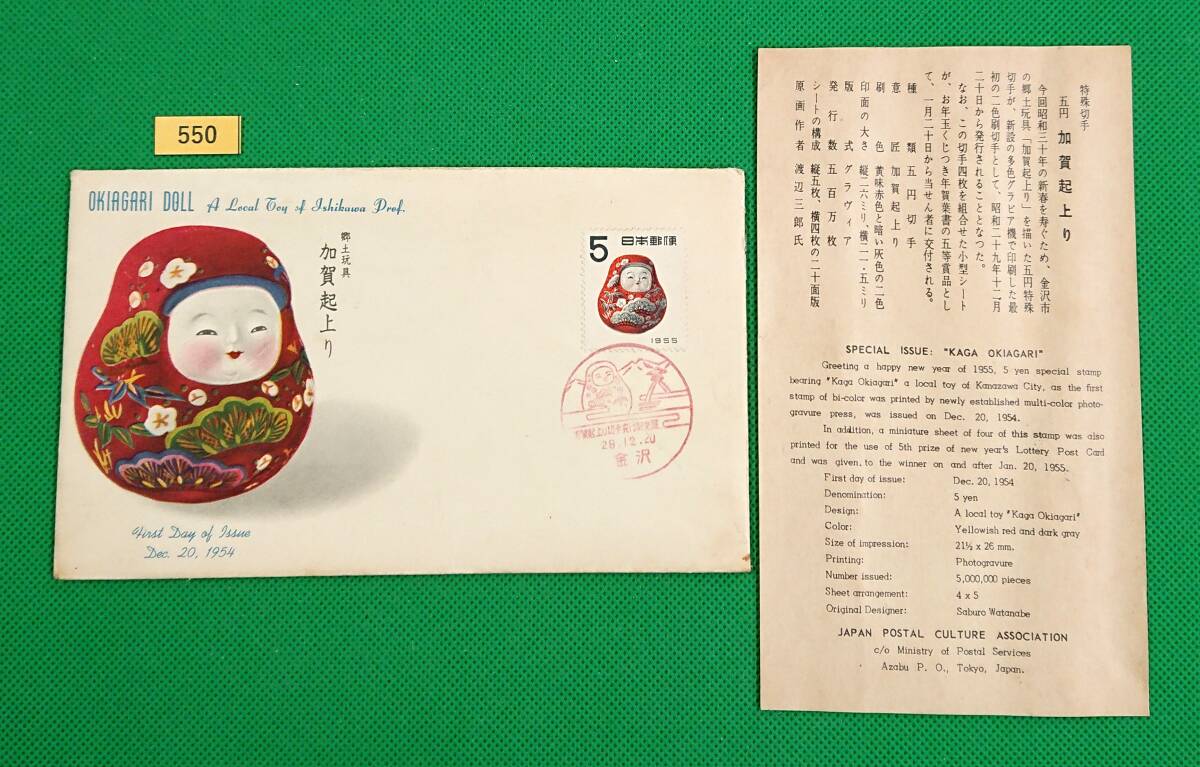 550
OKIAGARI DOLL A Local Toy of Ishikawa Pref.
郷土玩具
加賀起上り
5 日本郵便
1955
29.12.20
金沢
First Day of Issue
Dec. 20, 1954
特殊切手
五円 加賀起上り
今回昭和三十年の新春を寿ぐため、金沢市
の郷土玩具「加賀起上り」を描いた五円特殊
切手が、新設の多色グラビア機で印刷した最
初の二色刷切手として、昭和二十九年十二月
二十日から発行されることとなつた。
なお、この切手四枚を組合せた小型シート
が、お年玉くじつき年賀葉書の五等賞品とし
て、一月二十日から当せん者に交付される。
種類 五円切手
意匠 加賀起上り
刷色 黄味赤色と暗い灰色の二色
印面の大きさ 縦二六ミリ、横二一・五ミリ
版式 グラヴィア
発行数 五百万枚
シートの構成 縦五枚、横四枚の二十面版
原画作者 渡辺三郎氏
SPECIAL ISSUE: "KAGA OKIAGARI"
Greeting a happy new year of 1955, 5 yen special stamp
bearing "Kaga Okiagari" a local toy of Kanazawa City, as the first
stamp of bi-color was printed by newly established multi-color photo-
gravure press, was issued on Dec. 20, 1954.
In addition, a miniature sheet of four of this stamp was also
printed for the use of 5th prize of new year's Lottery Post Card
and was given, to the winner on and after Jan. 20, 1955.
First day of issue: Dec. 20, 1954
Denomination: 5 yen
Design: A local toy "Kaga Okiagari"
Color: Yellowish red and dark gray
Size of impression: 21½ x 26 mm.
Printing: Photogravure
Number issued: 5,000,000 pieces
Sheet arrangement: 4 x 5
Original Designer: Saburo Watanabe
JAPAN POSTAL CULTURE ASSOCIATION
c/o Ministry of Postal Services
Azabu P. O., Tokyo, Japan.